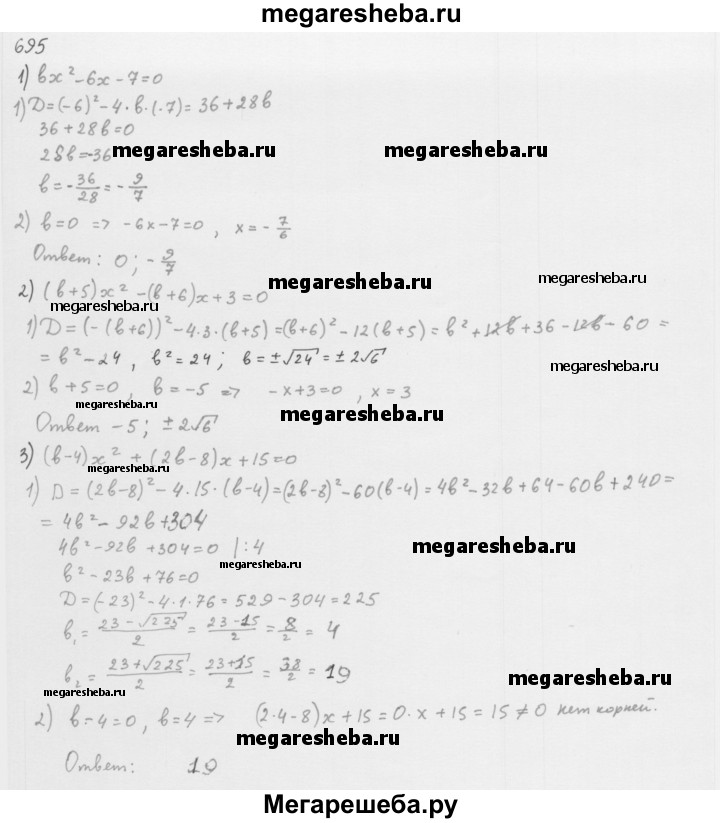 megaresheba.ru
695
1) bx² - 6x - 7 = 0
1) D = (-6)² - 4·b·(-7) = 36 + 28b
36 + 28b = 0
28b = -36
megaresheba.ru megaresheba.ru
b = -36/28 = -9/7
2) b = 0 => -6x - 7 = 0, x = -7/6
Ответ: 0; -9/7
megaresheba.ru megaresheba.ru
2) (b+5)x² - (b+6)x + 3 = 0
megaresheba.ru
1) D = (-(b+6))² - 4·3·(b+5) = (b+6)² - 12(b+5) = b² + 12b + 36 - 12b - 60 =
= b² - 24, b² = 24; b = ±√24 = ±2√6
megaresheba.ru
2) b + 5 = 0, b = -5 => -x + 3 = 0, x = 3
megaresheba.ru megaresheba.ru
megaresheba.ru
Ответ -5; ±2√6
3) (b-4)x² + (2b-8)x + 15 = 0
megaresheba.ru
1) D = (2b-8)² - 4·15·(b-4) = (2b-8)² - 60(b-4) = 4b² - 32b + 64 - 60b + 240 =
= 4b² - 92b + 304
4b² - 92b + 304 = 0 |:4
megaresheba.ru
megaresheba.ru
b² - 23b + 76 = 0
D = (-23)² - 4·1·76 = 529 - 304 = 225
b₁ = (23 - √225)/2 = (23 - 15)/2 = 8/2 = 4
b₂ = (23 + √225)/2 = (23 + 15)/2 = 38/2 = 19
megaresheba.ru
megaresheba.ru
2) b - 4 = 0, b = 4 => (2·4-8)x + 15 = 0·x + 15 = 15 ≠ 0 нет корней.
megaresheba.ru megaresheba.ru
Ответ: 19
Мегарешеба.ру